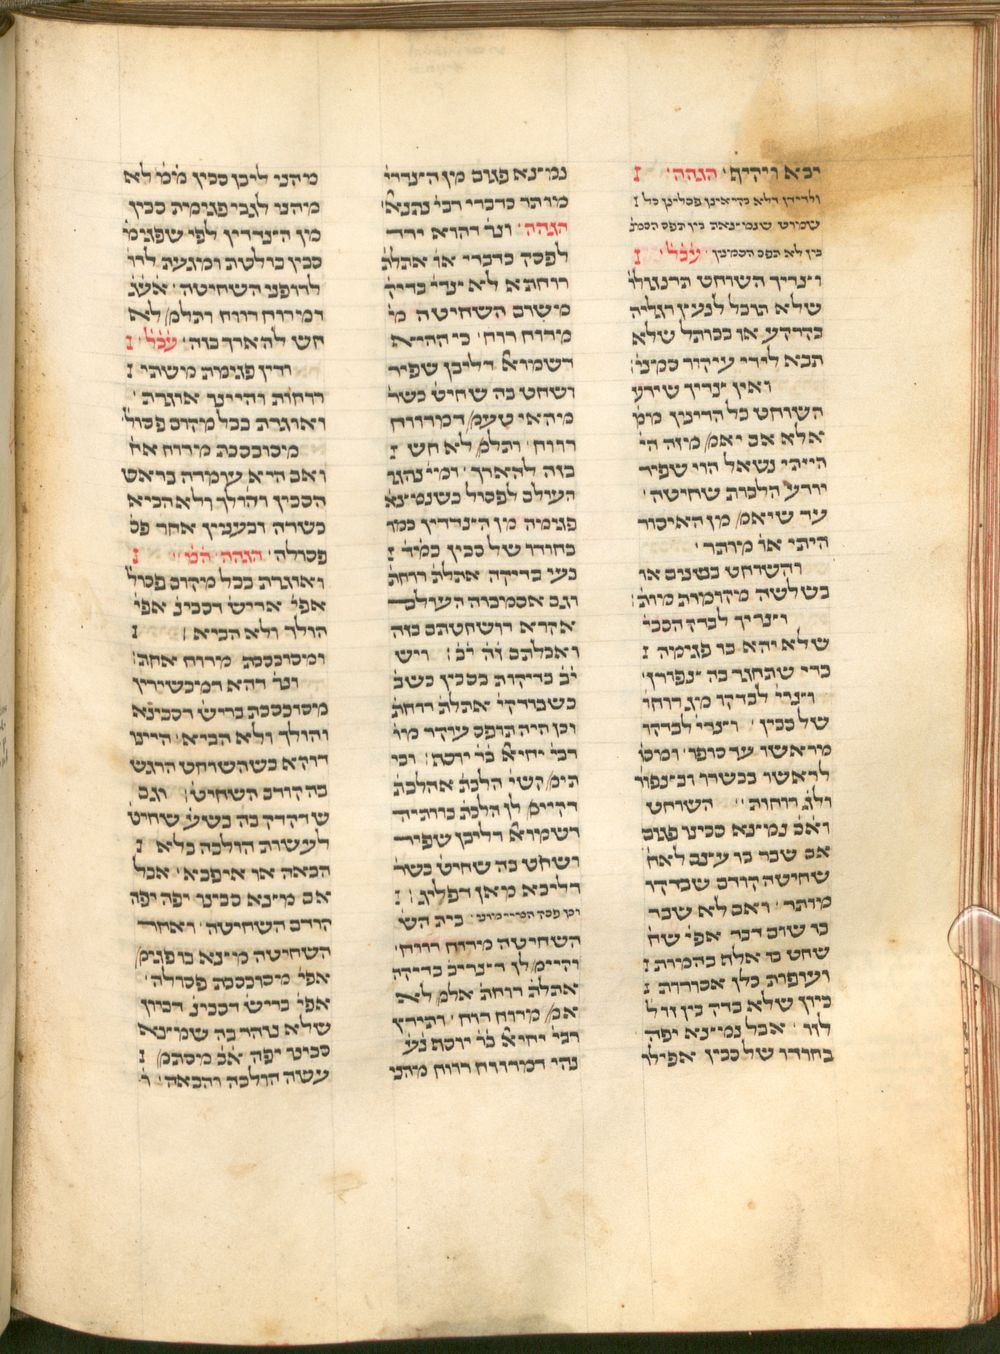 יבא ויהדף׳ הגהה׳
ולדידן דלא בקיאינן פסלינן כל
שמוט שנמצאה בין תפס הסמנ׳
בין לא תפס הסמנין׳ עכל׳
וצריך השוחט תרנגול׳
שלא תוכל לנעוץ רגליה
בקרקע או בכותל שלא
תבא לידי עיקור סמני׳
ואין צריך שידע
השוחט כל הדינין ממ׳
אלא אם יאמ׳ מזה הי׳
הייתי נשאל הוי שפיר
יודע הלכות שחיטה׳
עד שיאמ׳ מן האיסור
הייתי או׳ מותר׳
והשוחט בשנים או
בשלשה מקומות מות׳
וצריך לבדק הסכי׳
שלא יהא בו פגימה
כדי שתחגר בה צפורן׳
וצרי׳ לבדקו מג׳ רוחו׳
של סכין׳ וצרי׳ לבדקו
מראשו עד סופו׳ ומסו׳
לראשו בבשרו ובצפור׳
ולג׳ רוחות׳ השוחט
ואחכ נמצא סכינו פגום
אם שבר בו עצם לאח׳
שחיטה קודם שבדקו
מותר׳ ואם לא שבר
בו שום דבר אפי׳ שח׳
שחט בו אלף בהמות
ועופות כלן אסורות
כיון שלא בדק בין זו ל׳
לזו׳ אבל נמצא יפה
בחודו של סכין אפילו
נמצא פגום מן הצדדי׳
מותר כדברי רבי׳ נתנא׳
הגהה׳ ונר׳ דהוא ירד
לפסק כדברי או׳ אתלת
רוחתא לא צרי׳ בדיק׳
משום השחיטה מי׳
מרוח רוח׳ כי ההיא
דשמואל דליבן שפיר
ושחט בה שחיט׳ כשר׳
מהאי טעמ׳ דמרווח
רווח׳ ותלמ׳ לא חש
בזה להאריך׳ ומי׳ נהגו
העולם לפסול כשנמצא
פגימה מן הצדדין כמו
בחודו של סכין כמ״ד
בעי בדיקה אתלת רוחת׳
וגם אסמכוה העולם
אקרא ושחטתם בזה
ואכלתם זה יב׳ ויש
יב׳ בדיקות בסכין כשב׳
כשבודקי׳ אתלת רוחת׳
וכן היה תופס עיקר מו׳
רבי׳ יחיאל בר׳ יוסף׳ וכי
תימ׳ קשי׳ הלכת׳ אהלכת׳
דקיימ׳ לן הלכת׳ כוותיה
דשמואל דליבן שפיר
ושחט בה שחיט׳ כשר׳
דליכא מאן דפליג׳
וכן פסק המיימוני׳ בית הש׳
השחיטה מרוח רווח׳
וקיימ׳ לן דצריכ׳ בדיקה
אתלת רוחת׳ אלמ׳ לא
אמ׳ מרוח רוח׳ ותירץ
רבי׳ יחיאל בר׳ יוסף נע׳
נהי דמרווח רווח מהני
מהני ליבן סכין ממ׳ לא
מהני לגבי פגימת סכין
מן הצדדין לפי שפגימ׳
סכין בולטת ומגעת לדו׳
לדופני השחיטה׳ אעג
דמרוח רווח ותלמ׳ לא
חש להאריך בזה׳ עכל׳
ודין פגימת משתי
רוחות והיינו אוגרת׳
ואוגרת בכל מקום פסול׳
מסוכסכת מרוח אח׳
ואם היא עומדת בראש
הסכין והולך ולא הביא
כשרה ובענין אחר פס׳
פסולה׳ הגהה׳ המי׳
ואוגרת בכל מקום פסול׳
אפי׳ אריש׳ דסכינ׳ אפי׳
הולך ולא הביא׳
ומסוכסכת מרוח אחת׳
ונר׳ דהא דמכשירין
מסוכסכת בריש׳ דסכינא
והולך ולא הביא׳ היינו
דוקא כשהשוחט הרגש
בה קודם השחיט׳ וגם
שדקדק בה בשע׳ שחיט׳
לעשות הולכה בלא
הבאה או איפכא׳ אבל
אם מצא סכינו יפה יפה
קודם השחיטה׳ ואחר
השחיטה מצא בו פגימ׳
אפי׳ מסוכסכת פסולה׳
אפי׳ בריש׳ דסכינ׳ דכיון
שלא נזהר בה שמצא
סכינו יפה אכ׳ מסתמ׳
עשה הולכה והבאה׳ ו׳